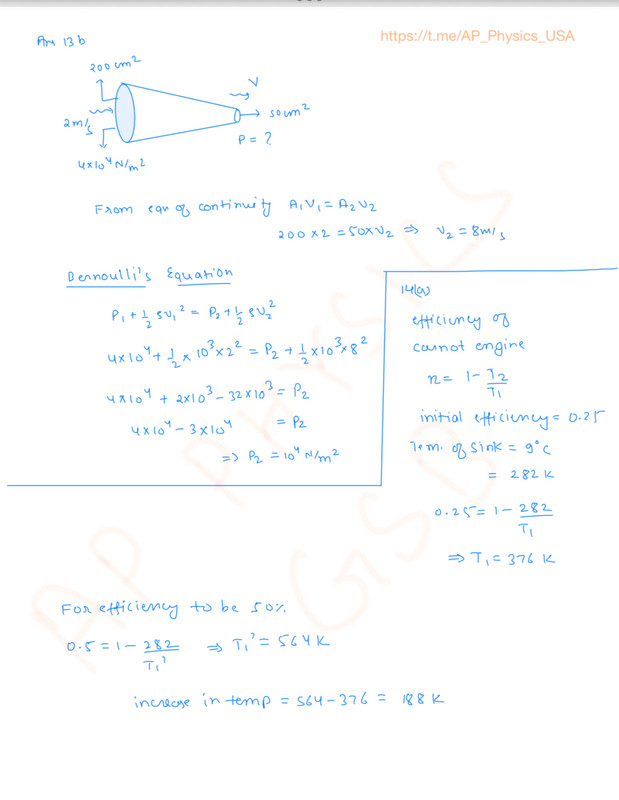 https://t.me/AP_Physics_USA
Ans 13 b
200 cm²
V
2m/s
50 cm²
P = ?
4×10⁴ N/m²
From eqn of continuity A₁V₁ = A₂V₂
200 × 2 = 50×V₂ ⇒ V₂ = 8m/s
Bernoulli's Equation
P₁ + ½ ρv₁² = P₂ + ½ ρv₂²
4×10⁴ + ½ × 10³×2² = P₂ + ½ ×10³×8²
4×10⁴ + 2×10³ – 32×10³ = P₂
4×10⁴ – 3×10⁴ = P₂
⇒ P₂ = 10⁴ N/m²
14(a)
efficiency of
carnot engine
n = 1 – T₂/T₁
initial efficiency = 0.25
Tem. of sink = 9°C
= 282 K
0.25 = 1 – 282/T₁
⇒ T₁ = 376 K
For efficiency to be 50%
0.5 = 1 – 282/T₁' ⇒ T₁' = 564 K
increase in temp = 564 – 376 = 188 K
AP PHYSICS
GSD